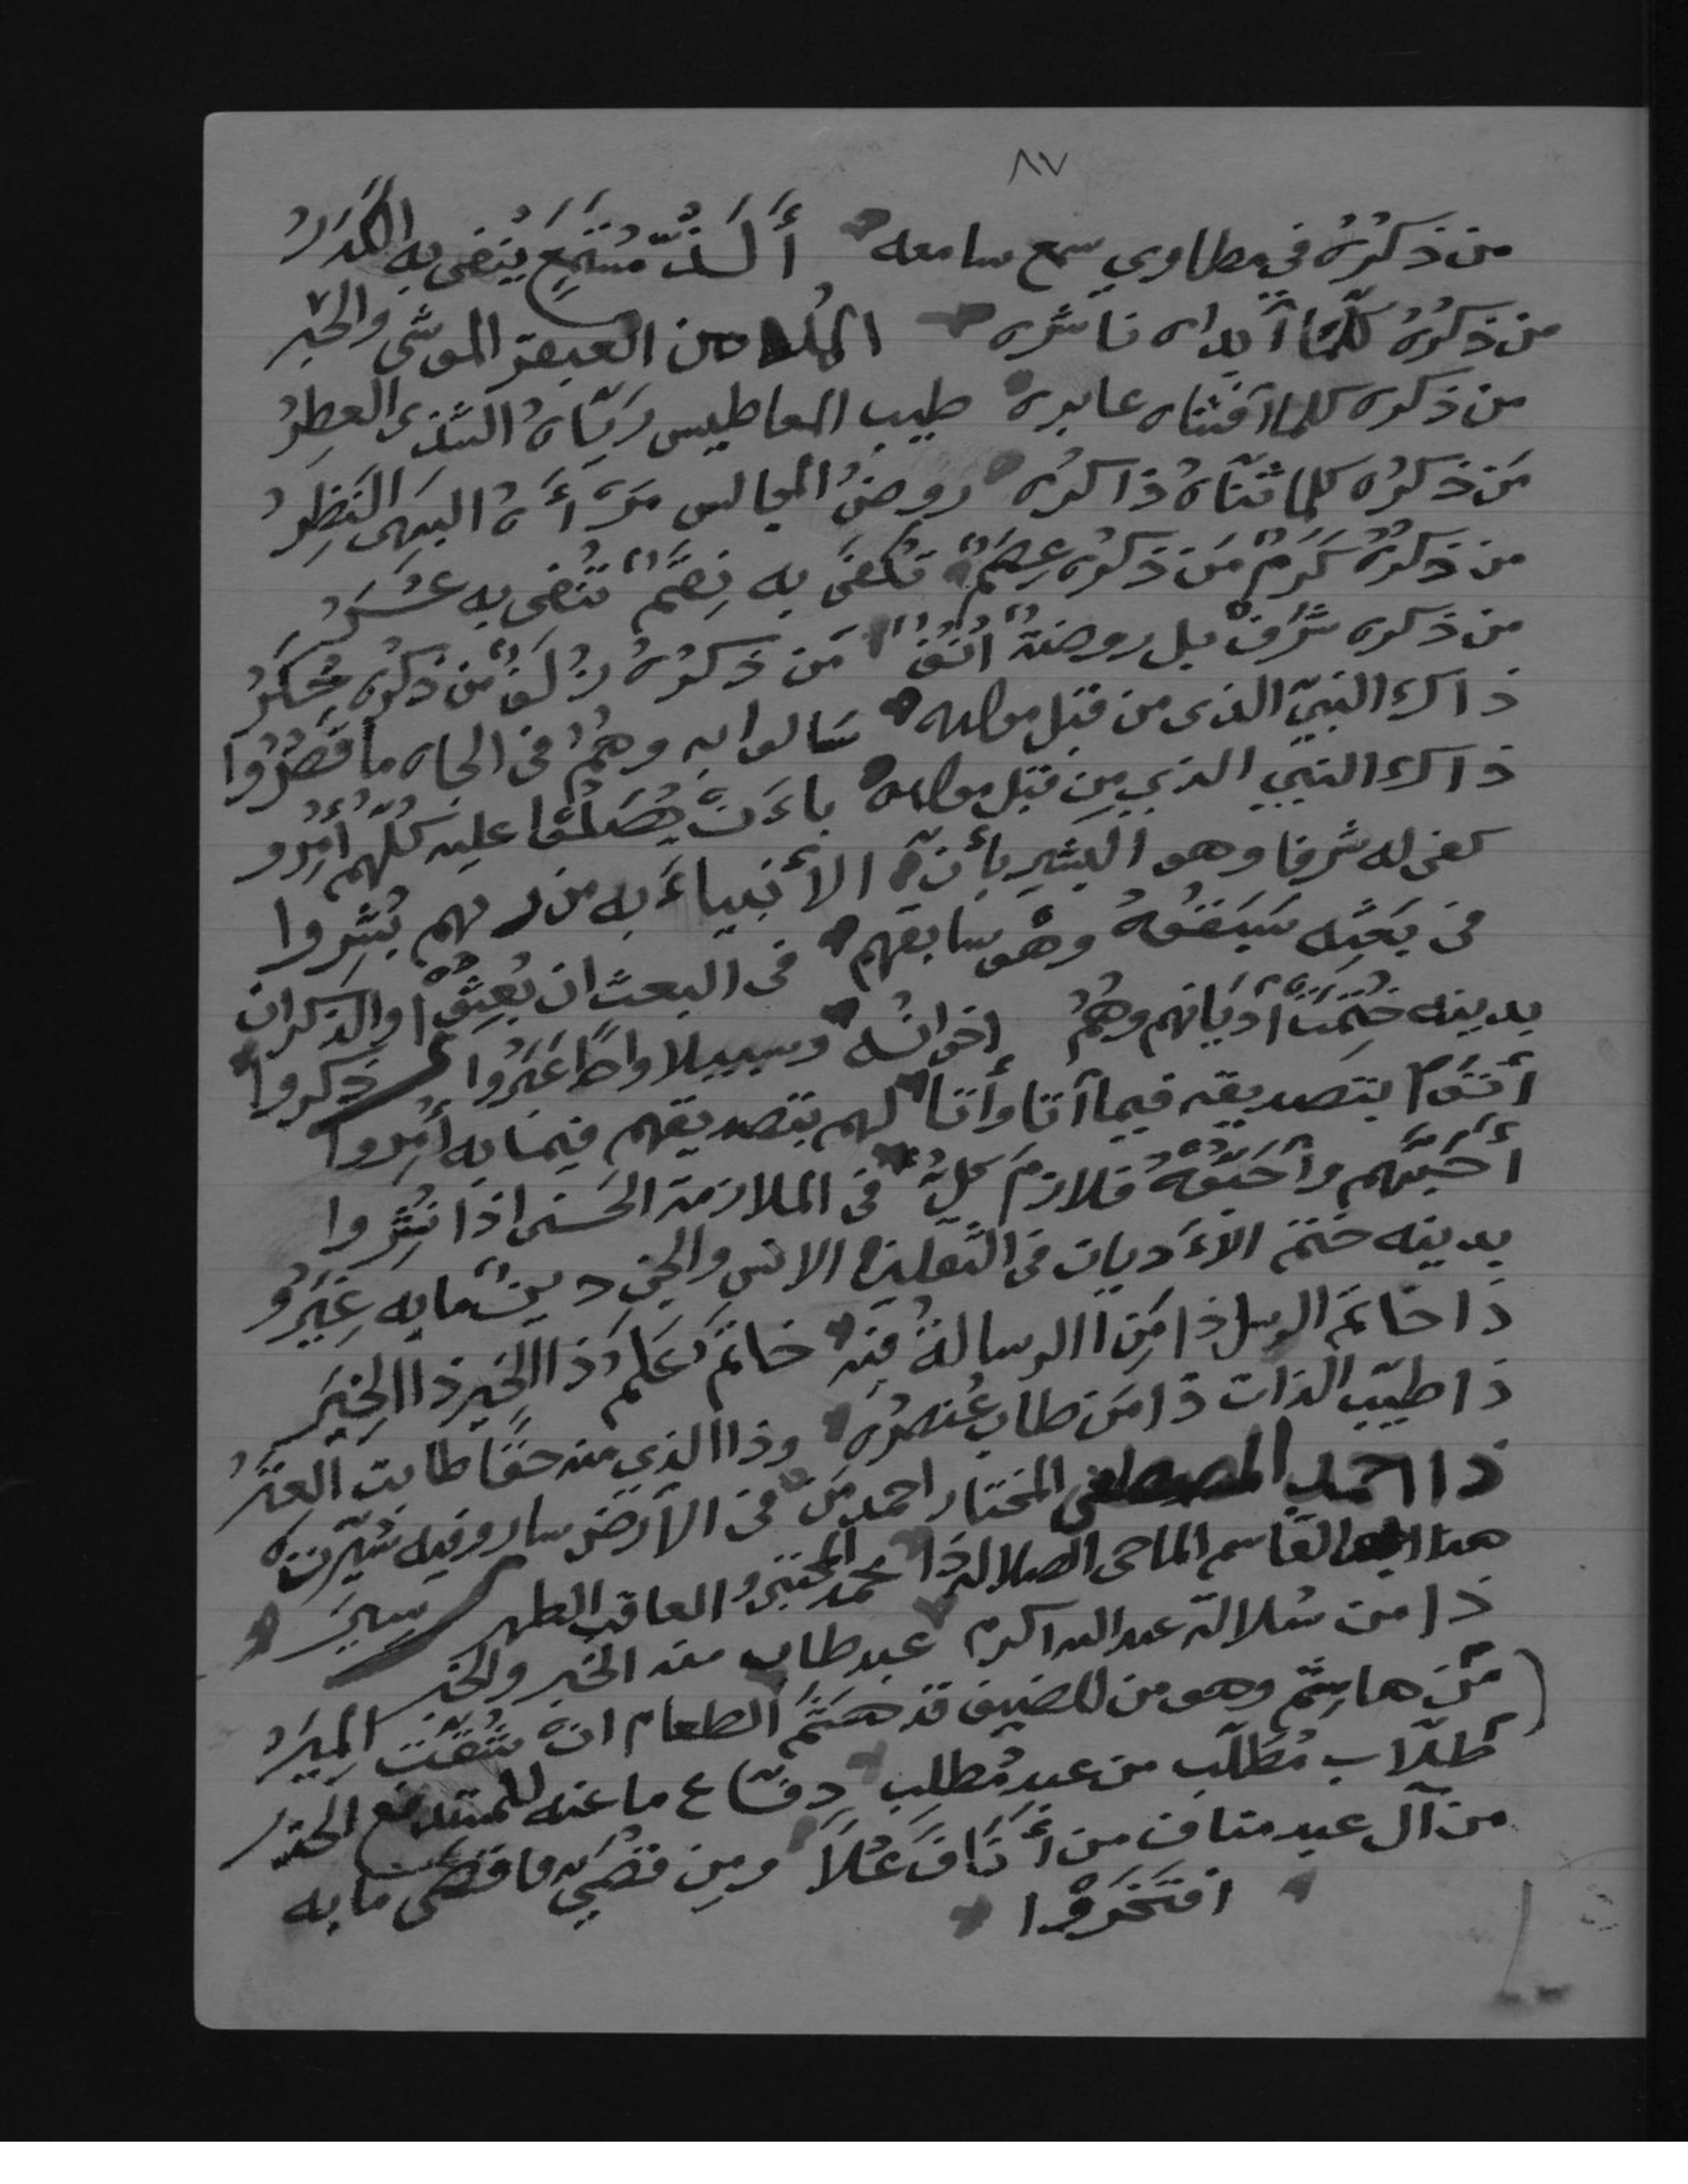 ٨٧
من ذكرُهُ في مطاوي سمع سامعه أَلَذُّ مُسْتَمَعٍ يُنفى به الكَدَرُ
من ذكرُهُ كلّما أبداه ناشره من العبقر الموشى والحبر
من ذكره كلما أفشاه عابره طيب المعاطيس ريّاهُ الشذى العطِرُ
مَن ذكرُه كلما ثنّاهُ ذاكرُه روضُ المجالس مرآهُ البهى النَضِرُ
من ذكرُهُ كَرَمٌ مَن ذكرُه عِصَمٌ تُكفَى به نِقَمٌ تُنْفى به عُسَرُ
من ذكره شَرَفٌ بل روضةٌ أُنُفٌ مَن ذكرُهُ زُلَفٌ من ذكرُه
ذاك النبيّ الذى من قبل مولده سالوا به وهُمُ فى الجاه ما قَصُرُوا
ذاك النبي الذي مِن قبل مولده بأَنْ يُصَلُّوا عليه كلّهم أُمِرُو
كفى له شرفا وهو البشير بأنّ الأنبياءَ به من ربهم بُشِروا
فى بَعثِه سَبَقُوهُ وهْو سابقهم فى البعث ان بُعِثُوا والذكر ان ذكروا
بدينه خُتِمَتْ أديانهم وهُمُ اخوانُه وسبيلا واحدًا عَبَرُوا
أتَوْا بتصديقه فيما أتا وأتا لهم بتصديقهم فيما به أُمِروا
أَحَبَّهم وأحَبُّوهُ فلازمَ كلٌّ فى الملازمة الحسنى اذا نُشِروا
بدينه ختم الأديان فى الثقلين الانس والجن دينٌ مابه غِيَرُ
ذا خاتمُ الرسل ذا مَن الرسالةُ منه خاتمٌ عَلَمٌ ذا الخِير ذا الخِيَر
ذا طيّب الذات ذا مَن طاب عُنصرُه وذا الذي منه حقًا طابت العِتَرُ
ذا احمد المصطفى المختار احمد مَن فى الأرض سار وفيه سُيّرت سِيَرُ
هذا القاسم الماحى الضلالة ذا محمد المجتبى والعاقب الطهر
ذا من سُلالة عبد الله اكرم عبد طاب منه الخَبر والخبر
مَن هاشِمٌ وهو من للضيف قد هَشَمَ الطعام ان شَقّت المِيَرُ
طلّاب مُطَّلَبٍ من عبد مُطلبٍ دفّاع ما عنه للمستدفع الحذر
من آل عبد مناف من أنَافَ عُلاً ومِن قُصَيٍّ ما به
افتَخَرُوْا